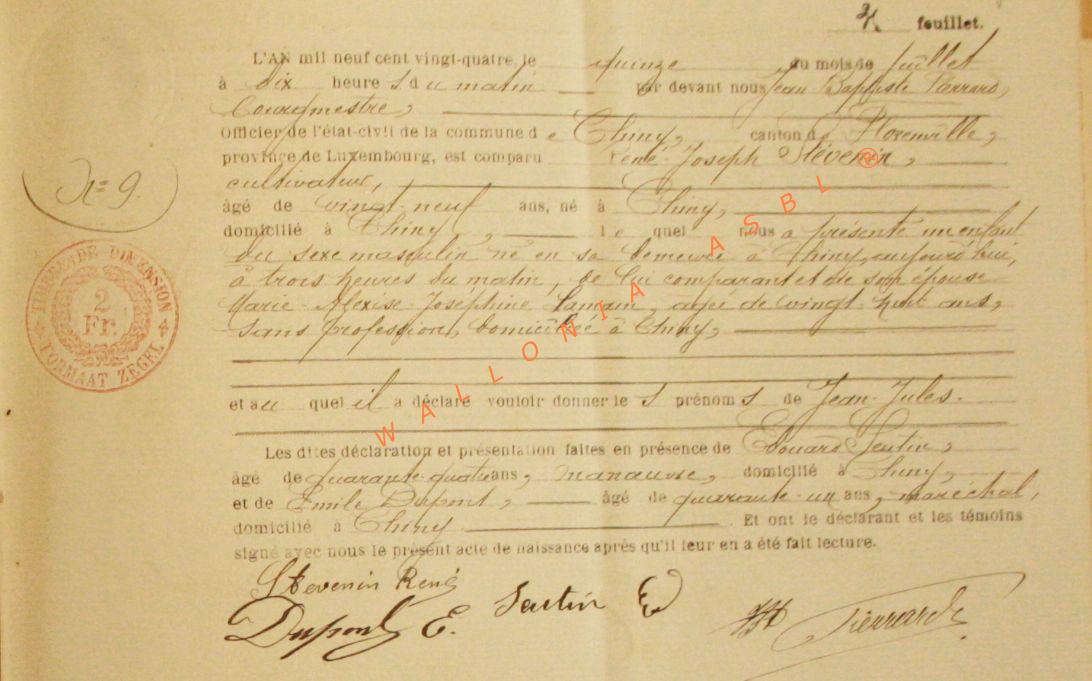 4 feuillet.
L'AN mil neuf cent vingt-quatre, le quinze du mois de juillet
à dix heures du matin par devant nous Jean Baptiste Pierrard,
bourgmestre,
Officier de l'état-civil de la commune de Chiny, canton de Florenville,
province de Luxembourg, est comparu René-Joseph Stévenin,
cultivateur,
N° 9.
âgé de vingt-neuf ans, né à Chiny,
domicilié à Chiny, lequel nous a présenté un enfant
du sexe masculin né en sa demeure à Chiny, aujourd'hui,
à trois heures du matin, de lui comparant et de son épouse
Marie-Alexise-Joséphine Lamain, agée de vingt huit ans,
sans profession, domiciliée à Chiny,
TIMBRE DE DIMENSION
2
Fr.
FORMAAT ZEGEL
et auquel il a déclaré vouloir donner les prénoms de Jean-Jules.
Les dites déclaration et présentation faites en présence de Edouard Sentin,
âgé de quarante-quatre ans, manœuvre, domicilié à Chiny,
et de Emile Dupont, âgé de quarante-un ans, maréchal,
domicilié à Chiny. Et ont le déclarant et les témoins
signé avec nous le présent acte de naissance après qu'il leur en a été fait lecture.
Stevenin René
Dupont E. Sentin E
JB Pierrard
WALLONIA ASBL ®